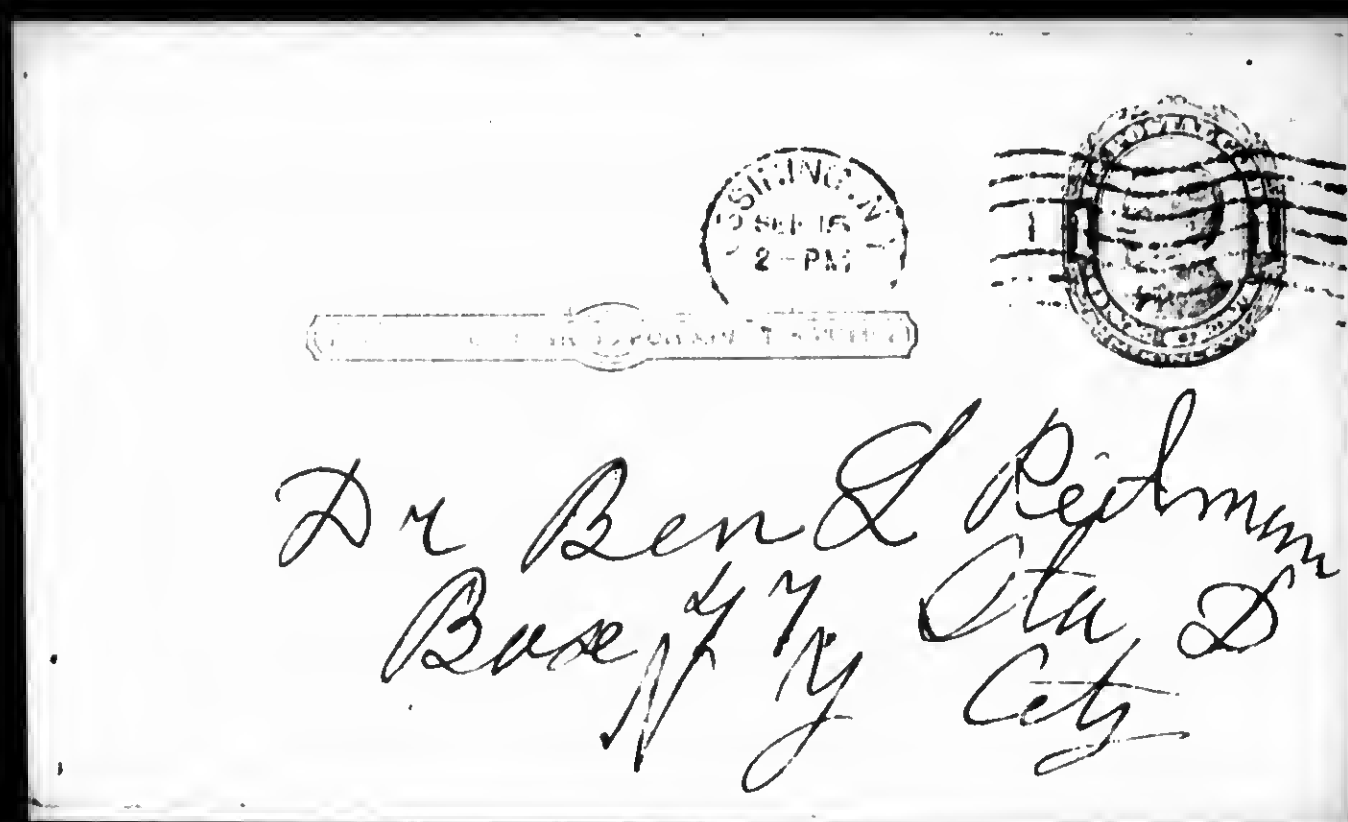 OSSINING, N.Y.
SEP
2-PM
POSTAL
1 1
Dr Ben L Reitman
Box 47 Sta D
N Y City